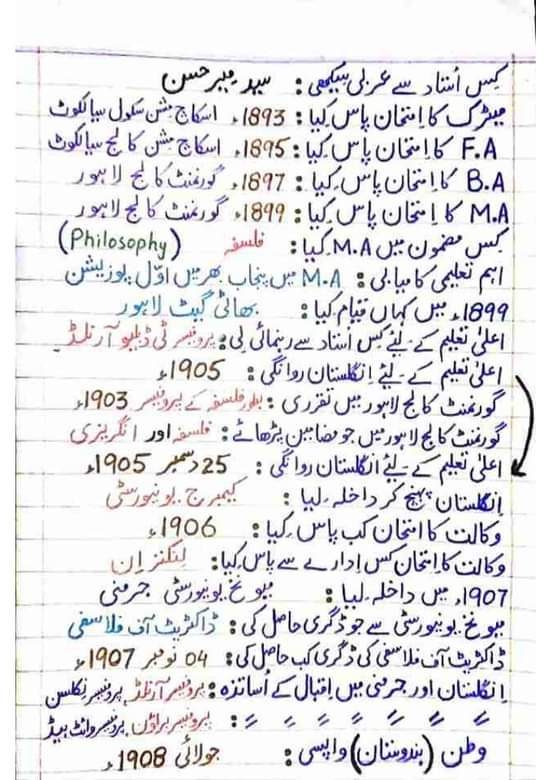 کس اُستاد سے عربی سیکھی : سید میر حسن
میٹرک کا اِمتحان پاس کیا : 1893ء اسکاچ مشن سکول سیالکوٹ
F.A کا اِمتحان پاس کیا : 1895ء اسکاچ مشن کالج سیالکوٹ
B.A کا اِمتحان پاس کیا : 1897ء گورنمنٹ کالج لاہور
M.A کا اِمتحان پاس کیا : 1899ء گورنمنٹ کالج لاہور
کس مضمون میں M.A کیا : فلسفہ (Philosophy)
اہم تعلیمی کامیابی : M.A میں پنجاب بھر میں اوّل پوزیشن
1899ء میں کہاں قیام کیا : بھاٹی گیٹ لاہور
اعلیٰ تعلیم کے لیئے کس اُستاد سے رہنمائی لی : پروفیسر ٹی ڈبلیو آرنلڈ
اعلیٰ تعلیم کے لیئے اِنگلستان روانگی : 1905ء
گورنمنٹ کالج لاہور میں تقرری : بطور فلسفہ کے پروفیسر 1903ء
گورنمنٹ کالج لاہور میں جو مضامین پڑھائے : فلسفہ اور انگریزی
اعلیٰ تعلیم کے لئے انگلستان روانگی : 25 دسمبر 1905ء
اِنگلستان پہنچ کر داخلہ لیا : کیمبرج یونیورسٹی
وکالت کا امتحان کب پاس کیا : 1906ء
وکالت کا اِمتحان کس اِدارے سے پاس کیا : لِنکنز اِن
1907ء میں داخلہ لیا : میونخ یونیورسٹی جرمنی
میونخ یونیورسٹی سے جو ڈگری حاصل کی : ڈاکٹریٹ آف فلاسفی
ڈاکٹریٹ آف فلاسفی کی ڈگری کب حاصل کی : 04 نومبر 1907ء
اِنگلستان اور جرمنی میں اِقبال کے اُساتذہ : پروفیسر آرنلڈ، پروفیسر نکلسن
〃 〃 〃 〃 〃 〃 〃 : پروفیسر براؤن، پروفیسر وائٹ ہیڈ
وطن (ہندوستان) واپسی : جولائی 1908ء